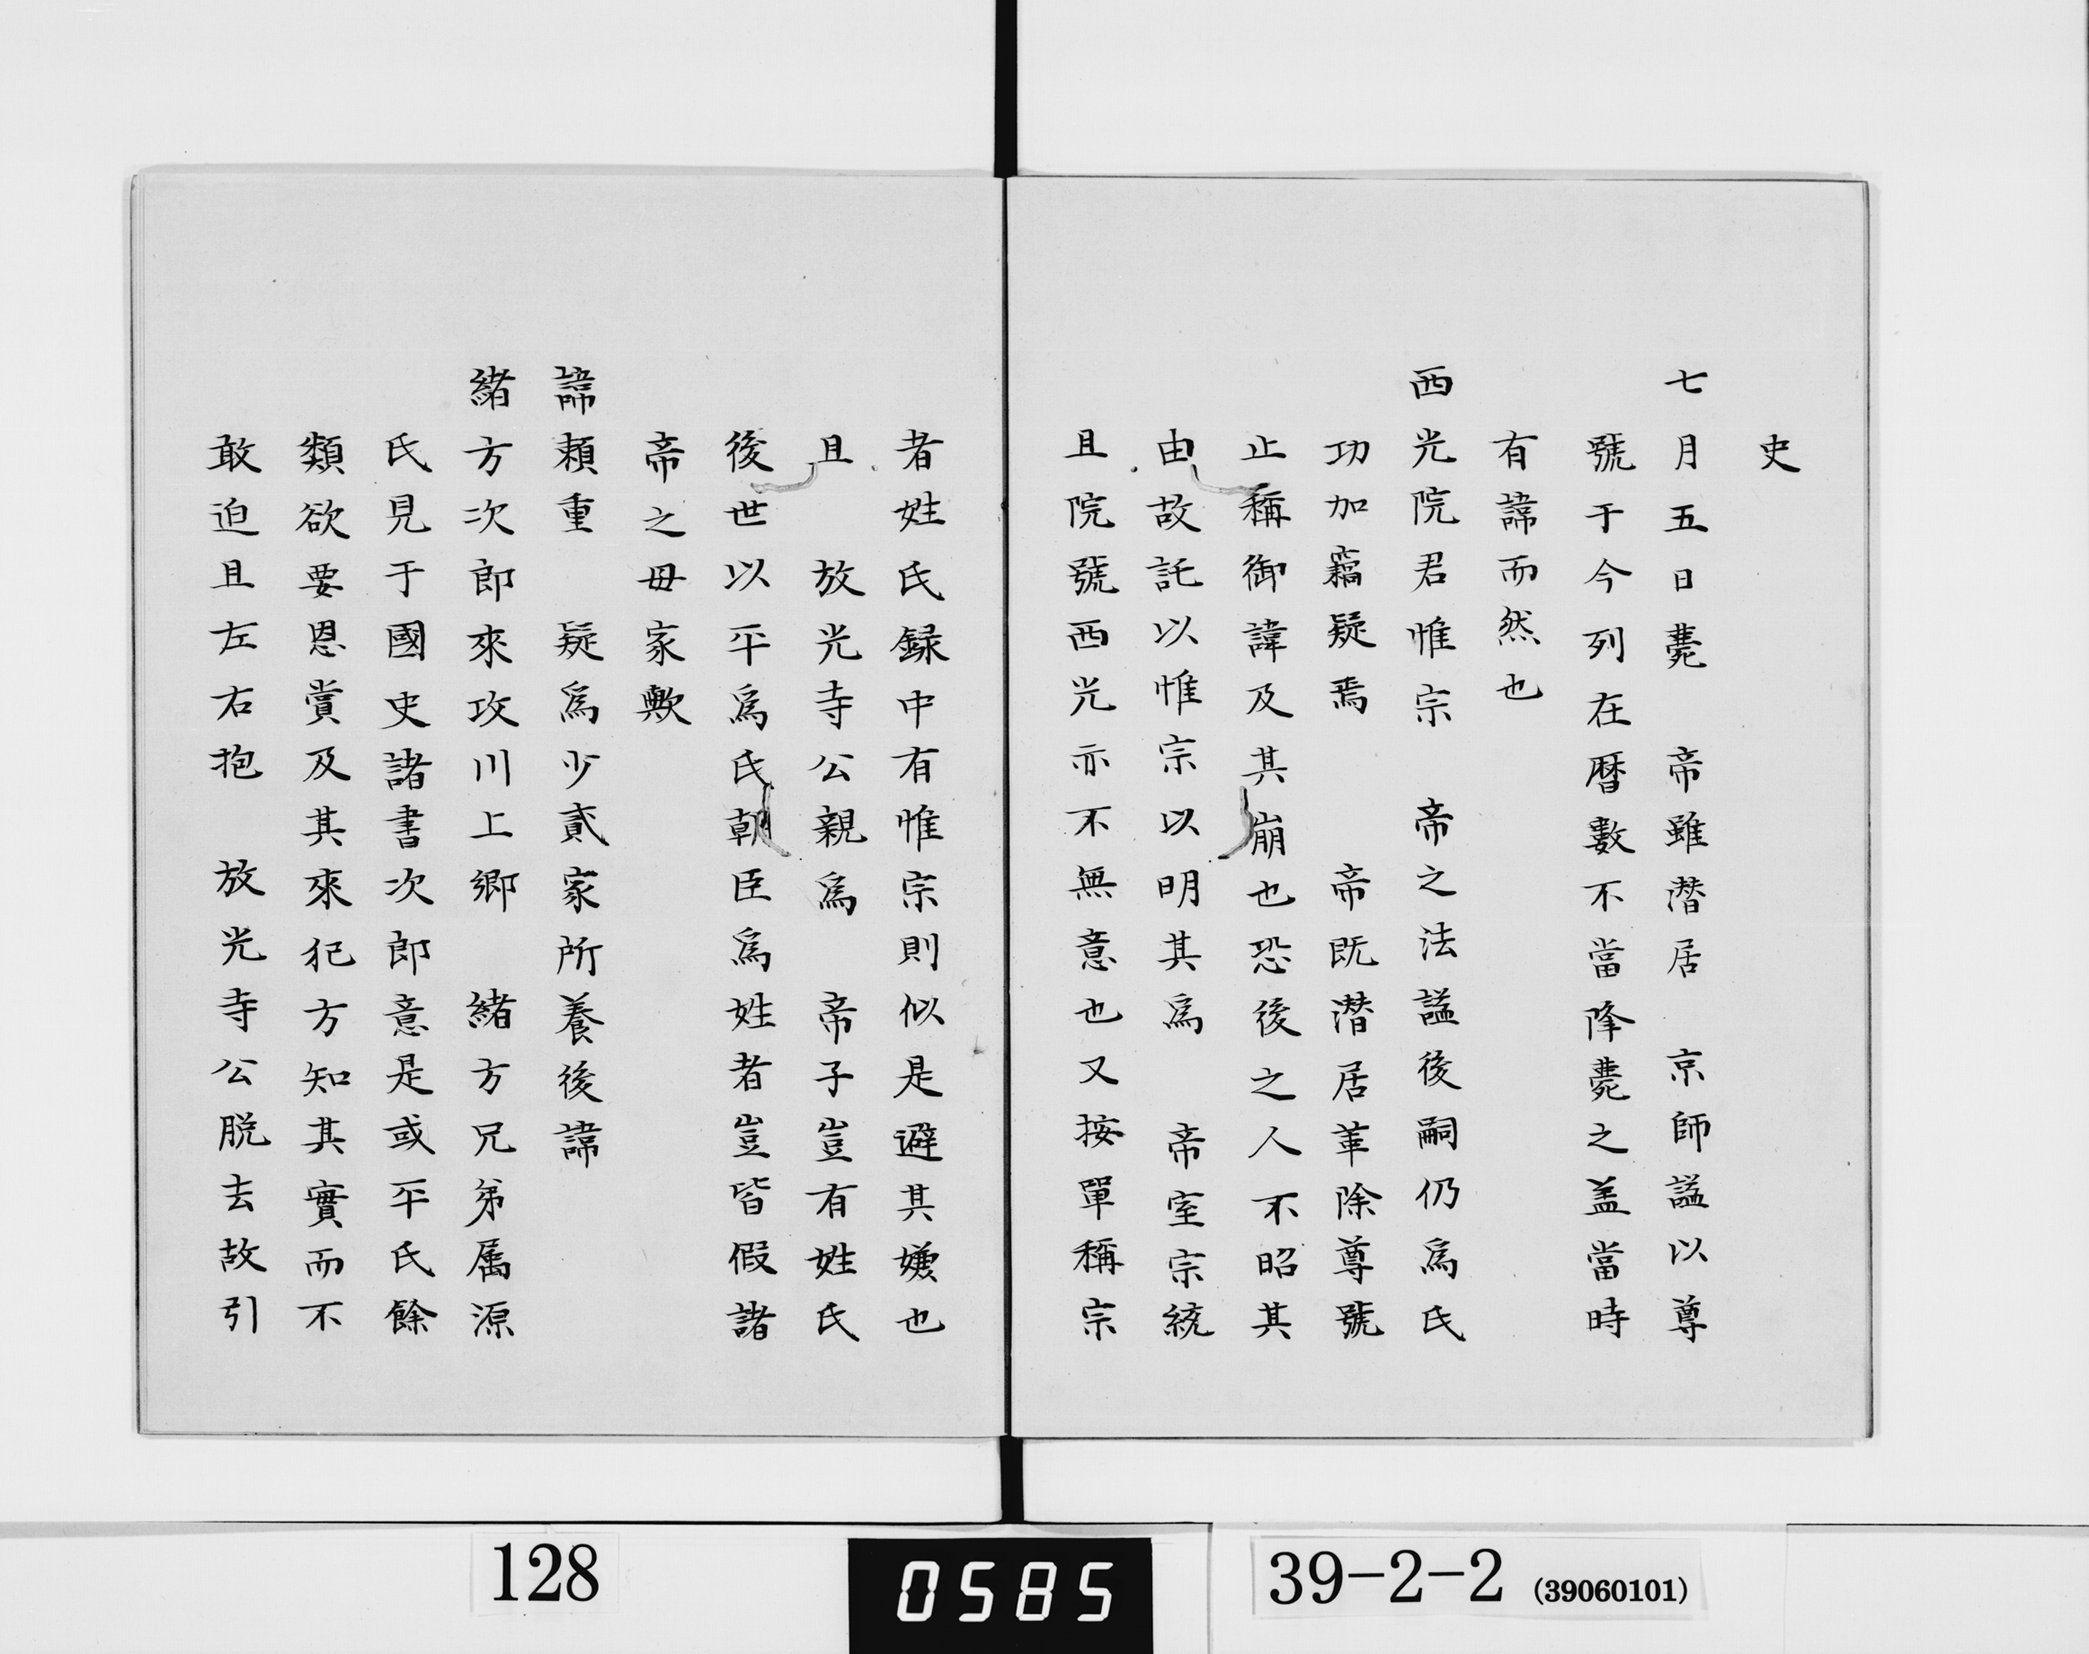 史
七月五日薨　帝雖潛居　京師謚以尊
號于今列在曆數不當降薨之盖當時
有諦而然也
西光院君惟宗　帝之法謚後嗣仍爲氏
功加竊疑焉　　帝既潛居革除尊號
止稱御諱及其崩也恐後之人不昭其
由故託以惟宗以明其爲　帝室宗統
且院號西光亦不無意也又按單稱宗
者姓氏録中有惟宗則似是避其嫌也
且　放光寺公親爲　帝子豈有姓氏
後世以平爲氏朝臣爲姓者豈皆假諸
帝之毋家歟
諦賴重　疑爲少貳家所養後諦
緒方次郎來攻川上鄉　緒方兄弟属源
氏見于國史諸書次郎意是或平氏餘
類欲要恩賞及其來犯方知其實而不
敢迫且左右抱　放光寺公脱去故引
128
0585
39-2-2 (39060101)